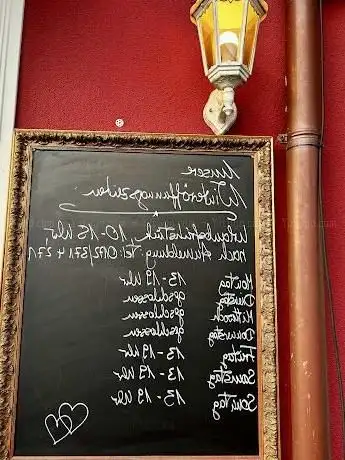 Unsere
Winteröffnungszeiten:
Urlaubsfrühstück, 10-13 Uhr
nach Anmeldung: Tel: 0172/371 4 271
Montag 13-19 Uhr
Dienstag geschlossen
Mittwoch geschlossen
Donnerstag geschlossen
Freitag 13-19 Uhr
Samstag 13-19 Uhr
Sonntag 13-19 Uhr